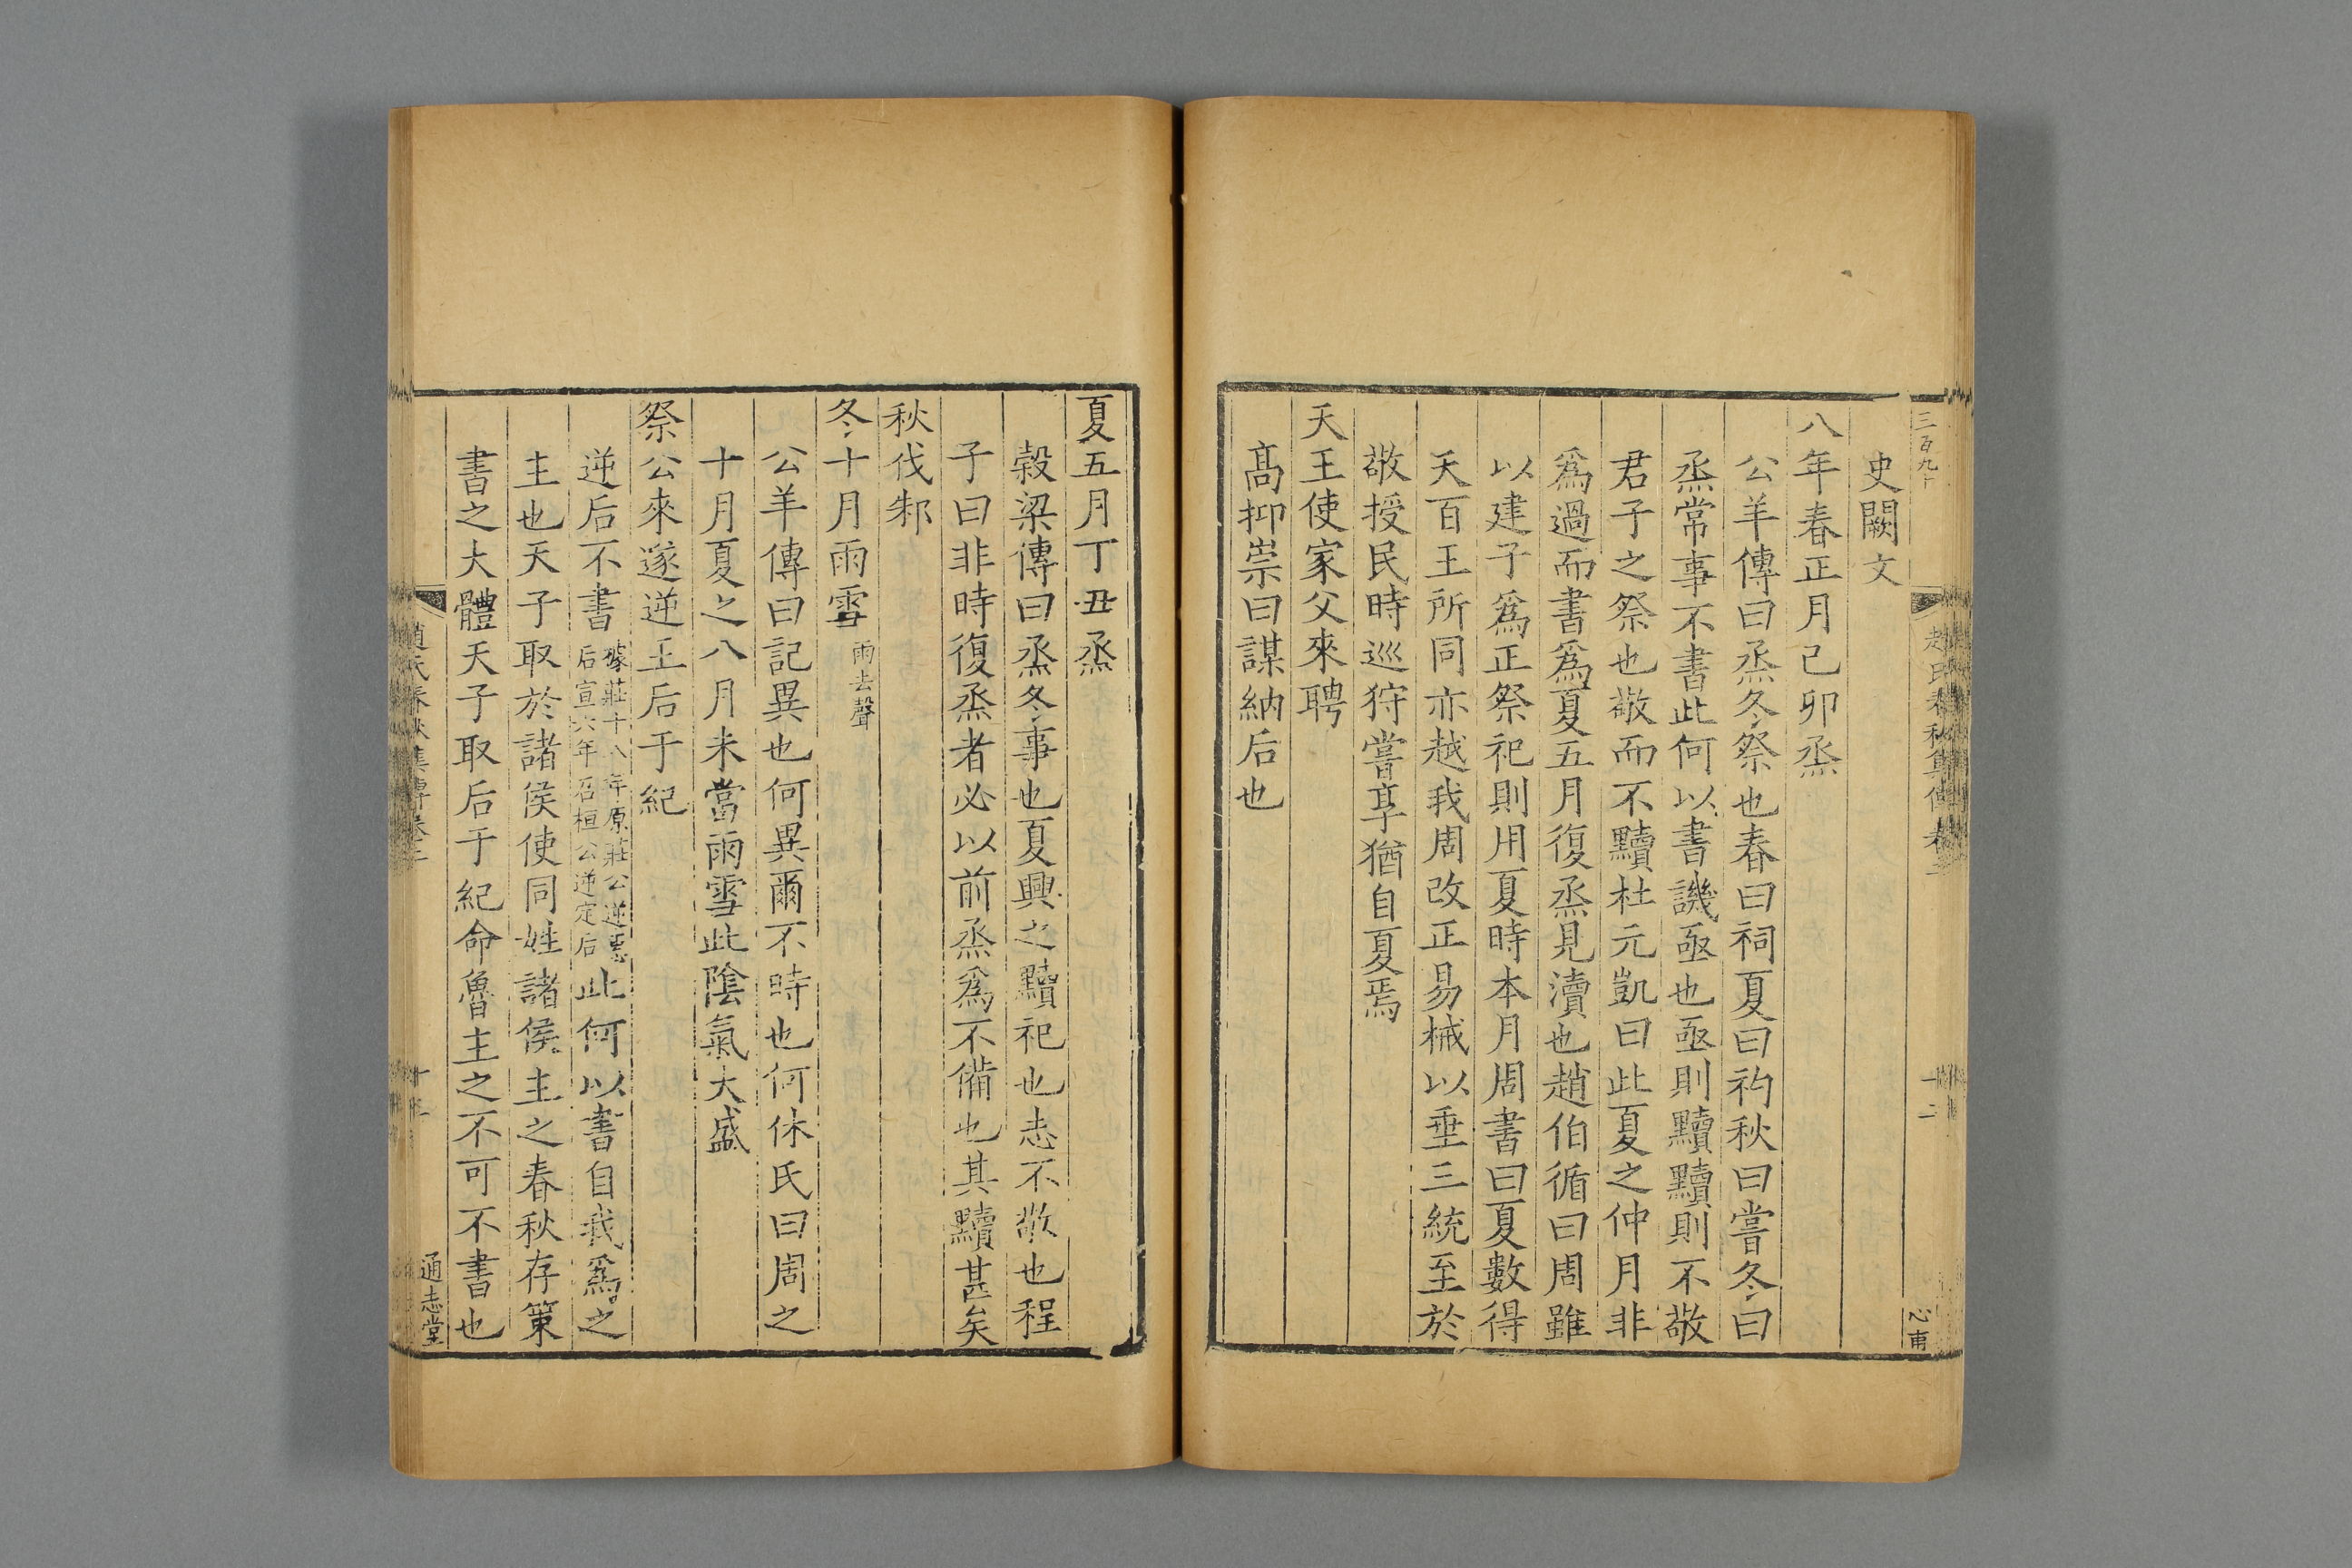 三百九十
史闕文
八年春正月己卯烝
公羊傳曰烝冬祭也春曰祠夏曰礿秋曰嘗冬曰
烝常事不書此何以書譏亟也亟則黷黷則不敬
君子之祭也敬而不黷杜元凱曰此夏之仲月非
爲過而書爲夏五月復烝見瀆也趙伯循曰周雖
以建子爲正祭祀則用夏時本月周書曰夏數得
天百王所同亦越我周改正易械以垂三統至於
敬授民時巡狩嘗享猶自夏焉
天王使家父來聘
髙抑崇曰謀納后也
夏五月丁丑烝
榖梁傳曰烝冬事也夏興之黷祀也志不敬也程
子曰非時復烝者必以前烝爲不備也其黷甚矣
秋伐邾
冬十月雨雪雨去聲
公羊傳曰記異也何異爾不時也何休氏曰周之
十月夏之八月未當雨雪此陰氣大盛
祭公來遂逆王后于紀
逆后不書據莊十八年原莊公逆惠后宣六年召桓公逆定后此何以書自我爲之
主也天子取於諸侯使同姓諸侯主之春秋存策
書之大體天子取后于紀命魯主之不可不書也
趙氏春秋集傳卷二
通志堂